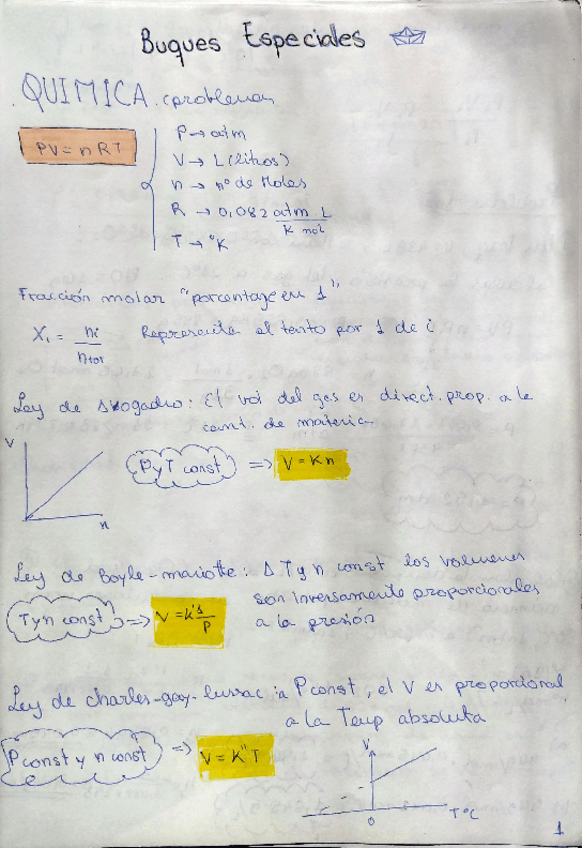 Buques Especiales
QUIMICA (problemas)
PV = nRT
P → atm
V → L (litros)
n → nº de Moles
R → 0,082 atm L / K mol
T → °K
Fracción molar "porcentaje en 1"
Xi = ni / ntot Representa el tanto por 1 de i
Ley de Avogadro: El vol del gas es direct. prop. a la
cant. de materia
V
n
P y T const => V = Kn
Ley de Boyle-mariotte: A T y n const los volumenes
son inversamente proporcionales
a la presión
T y n const => V = K' 1/P
Ley de charles-gay-lussac: a P const, el V es proporcional
a la Temp absoluta
P const y n const => V = K'' T
V
0
T °C
1